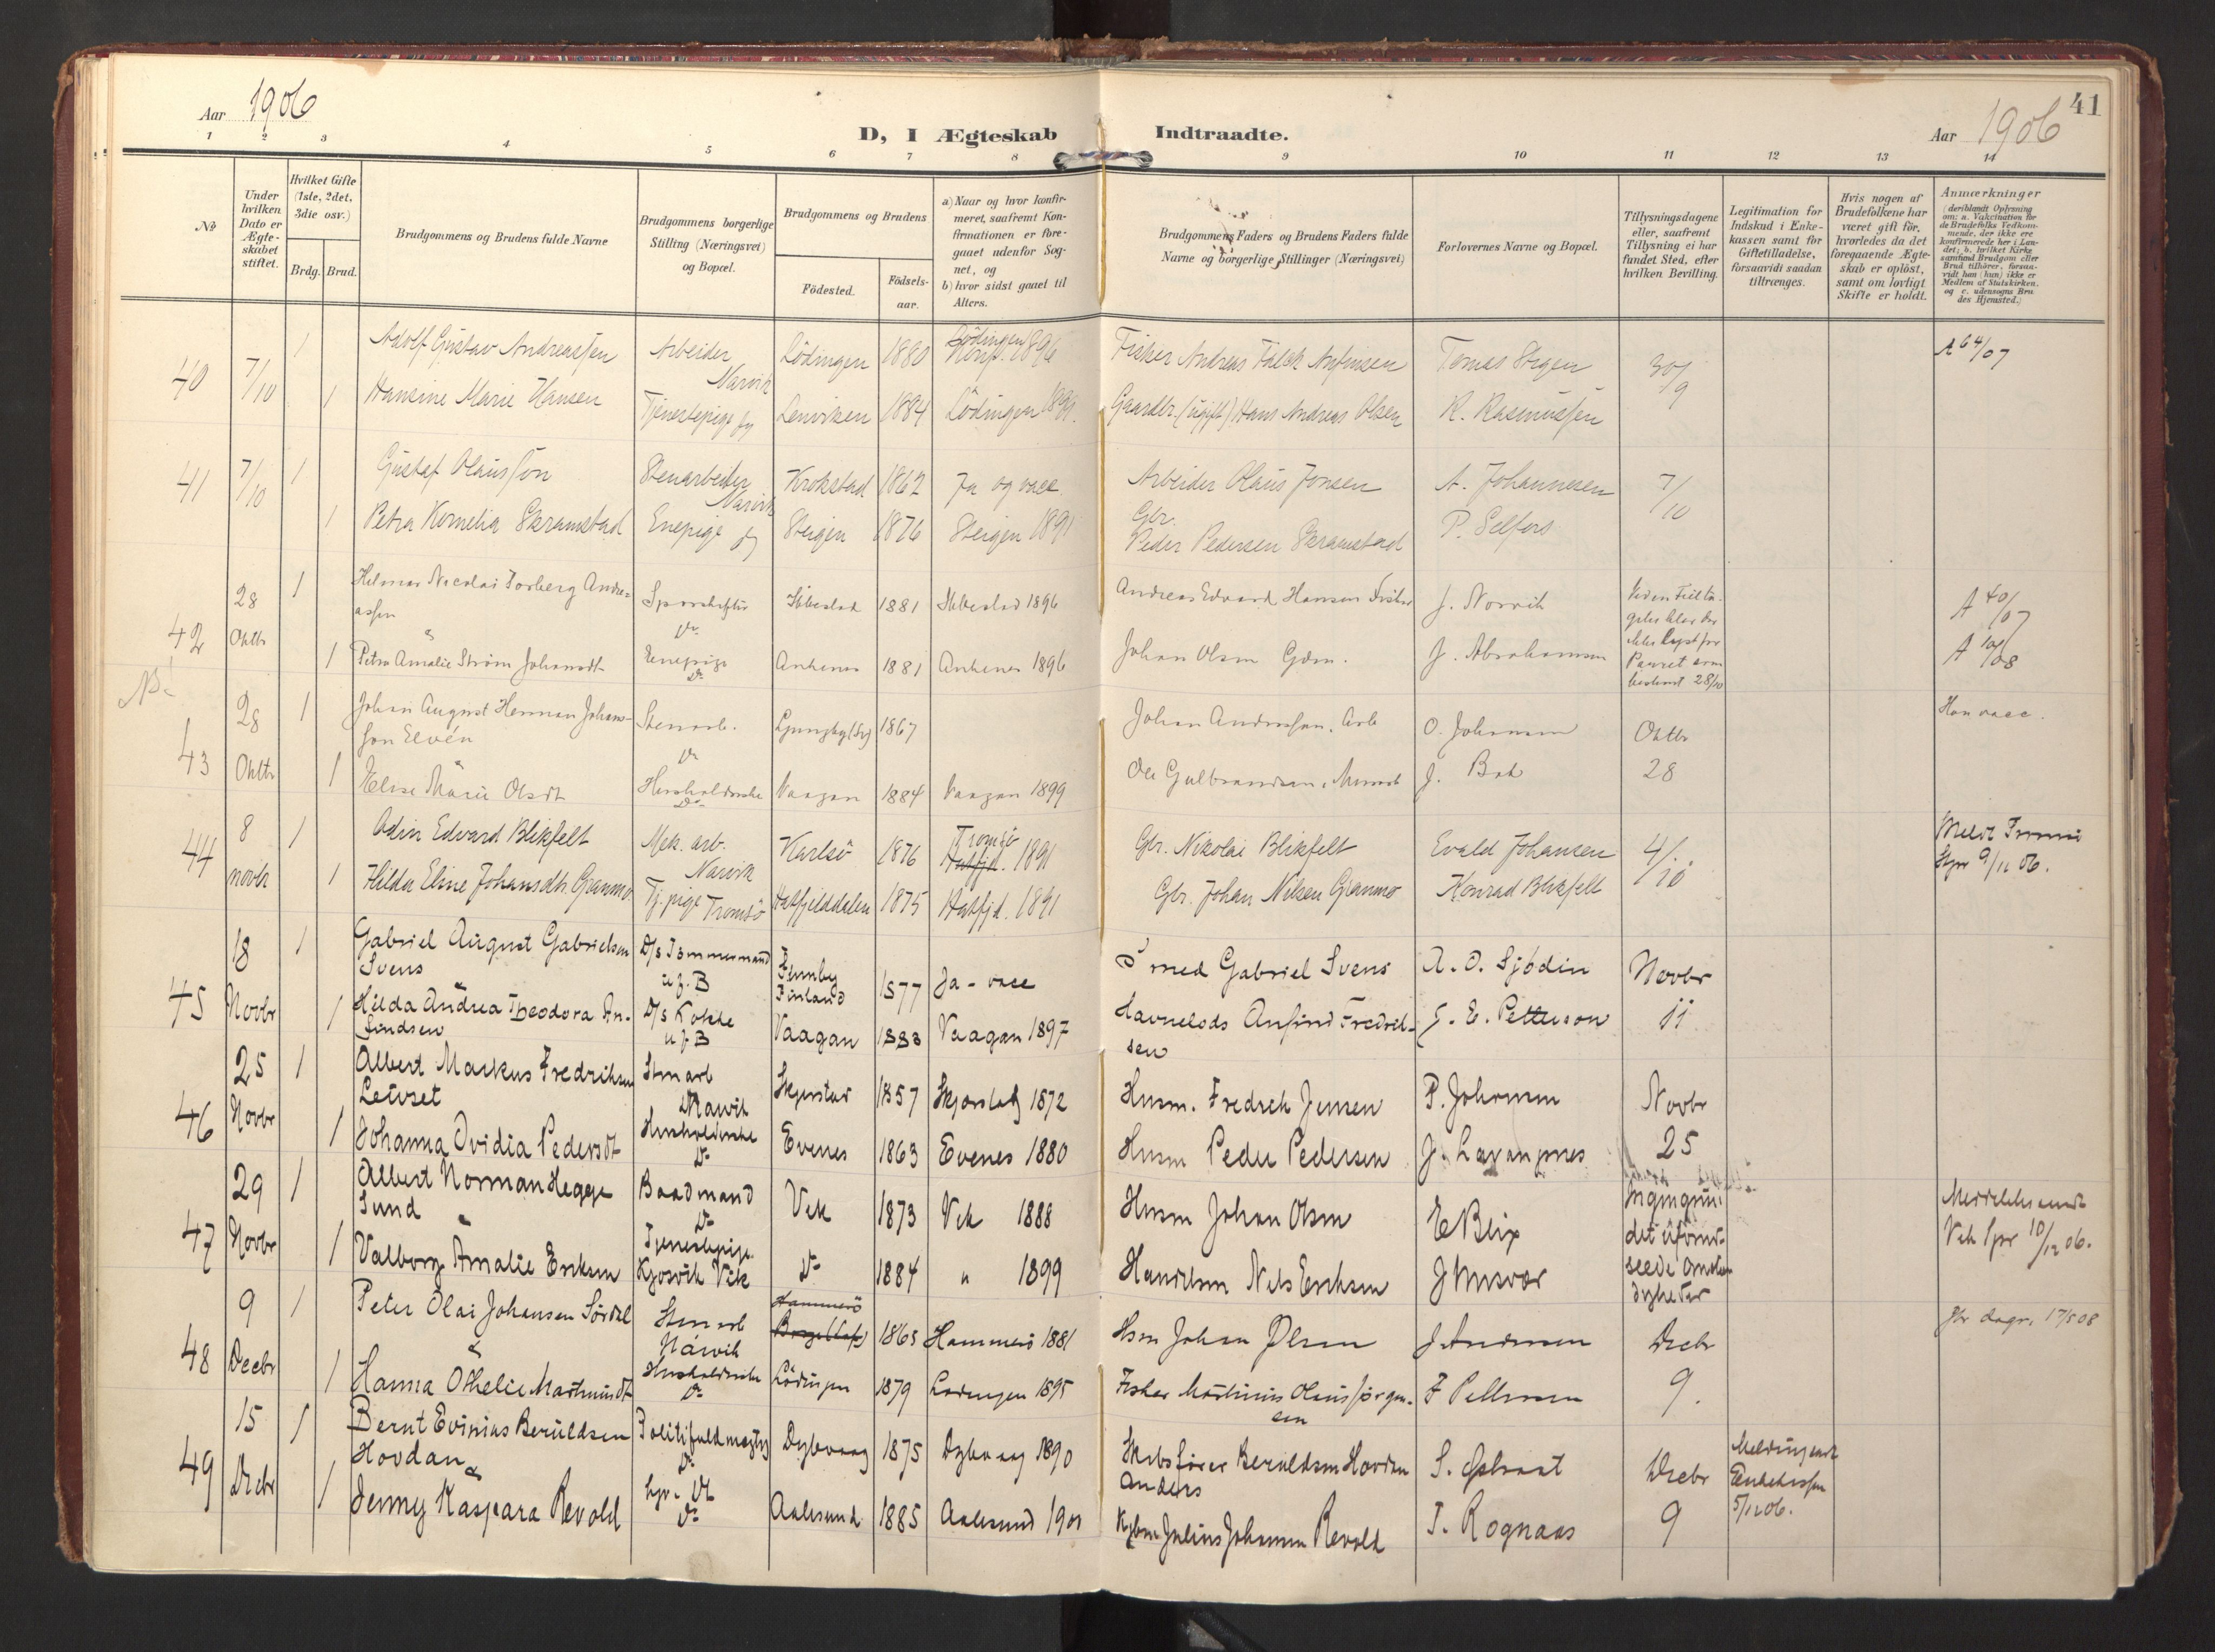 Aar 1906
D, I Ægteskab Indtraadte.
Aar 1906
41
1 2 3 4 5 6 7 8 9 10 11 12 13 14
No
Under hvilken Dato er Ægteskabet stiftet.
Hvilket Gifte (1ste, 2det, 3die osv.)
Brdg. Brud.
Brudgommens og Brudens fulde Navne
Brudgommens borgerlige Stilling (Næringsvei) og Bopæl.
Brudgommens og Brudens
Födested.
Födselsaar.
a) Naar og hvor konfirmeret, saafremt Konfirmationen er foregaaet udenfor Sognet, og
b) hvor sidst gaaet til Alters.
Brudgommens Faders og Brudens Faders fulde Navne og borgerlige Stillinger (Næringsvei)
Forlovernes Navne og Bopæl.
Tillysningsdagene eller, saafremt Tillysning ei har fundet Sted, efter hvilken Bevilling.
Legitimation for Indskud i Enkekassen samt for Giftetilladelse, forsaavidt saadan tiltrænges.
Hvis nogen af Brudefolkene har været gift för, hvorledes da det foregaaende Ægteskab er oplöst, samt om lovligt Skifte er holdt.
Anmærkninger
(deriblandt Oplysning om: a. Vakcination for de Brudefolks Vedkommende, der ikke ere konfirmerede her i Landet; b. hvilket Kirkesamfund Brudgom eller Brud tilhörer, forsaavidt han (hun) ikke er Medlem af Statskirken, og c. udensogns Brudes Hjemsted.)
40 7/10 1 Adolf Gustav Andreassen Arbeider Narvik Lödingen 1880 Lödingen 1896 Fisker Andreas Falck Anfinsen Tomas Stegen 30/9 A 64/07
1 Hansine Marie Hansen Tjenestepige Lenviken 1884 Lödingen 1899. Gaardbr. (ugift) Hans Andreas Olsen R. Rasmussen
41 7/10 1 Gustaf Olausson Stenarbeider Narvik Krokstad 1862 Ja og vacc Arbeider Olaus Jonsen A. Johannesen 7/10
1 Petra Kornelia Skramstad Enepige Steigen 1876 Steigen 1891 Gbr. Peder Pedersen Skramstad P. Selfors
42 28 Oktb 1 Helmar Nicolai Torberg Andreassen Ibbestad 1881 Ibbestad 1896 Andreas Edvard Hansen Fisker J. Norvik A 40/07
1 Petra Amalie Strøm Johansdt Enepige Do Ankenes 1881 Ankenes 1896 Johan Olsen Gdm. J. Abrahamsen 28/10 A 108/08
43 28 Oktb 1 Johan August Herman Johansson Elvén Stenarb. Do Ljungby (Sv) 1867 Johan Andersson, Arb O. Johansen Oktb 28 Han vacc.
1 Elise Marie Olsdt Husholderske Do Vaagan 1884 Vaagan 1899 Ole Gulbrandsen, J. Bok
44 8 novbr 1 Odin Edvard Blixfelt Mek. arb. Narvik Karlsö 1876 Tromsö 1891 Gbr. Nikolai Blixfelt Evald Johansen 4/10 Meldt Tromsö Spr 9/11 06.
1 Hilda Eline Johansdtr. Granmo Tj. pige Tromsö Hatfjelddalen 1875 Hatfjd. 1891 Gbr. Johan Nilsen Granmo Konrad Blixfelt
45 18 Novbr 1 Gabriel August Gabrielsen Svens D/s Tømmermand u.f.B Finland 1877 Ja - vacc Smed Gabriel Svens A. O. Sjödin Novbr 11
1 Hilda Andrea Theodora Anfindsen D/s Kokke u.f.B Vaagan 1883 Vaagan 1897 Havnelods Anfind Fredriksen G. E. Petterson
46 25 Novbr 1 Albert Markus Fredriksen Leivset Stenarb Narvik Skjerstad 1857 Skjerstad 1872 Husm. Fredrik Jensen P. Johansen Novbr 25
1 Johanna Ovidia Pedersdt Husholderske Do Evenes 1863 Evenes 1880 Husm Peder Pedersen J. Lavangnes
47 29 Novbr 1 Albert Norman Heggesund Baadmand Do Vik 1873 Vik 1888 Husm Johan Olsen E Blix Ingen grundet uforudseede omstændigheder Meddelelse sendt Vik Spr 10/12 06.
1 Valborg Amalie Eriksen Tjenestepige Kjosvik Vik Do 1884 " 1899 Handelsm Nils Eriksen J Husvær
48 9 Decbr 1 Peter Olai Johansen Sørdal Stenarb Narvik Hammerö 1863 Hammerö 1881 Hsm Johan Olsen J Andersen Decbr 9. 17/5 08
1 Hanna Othelie Martinusdt Husholderske Do Lödingen 1879 Lödingen 1895 Fisker Martinus Olaus Jörgensen F Pettersen
49 15 Decbr 1 Bernt Evinius Beruldsen Hovdan Politifuldmægtig Do Dybvaag 1875 Dybvaag 1890 Skibsfører Beruldsen Hovdan Anders S. Opland Decbr 9 Melding sendt Enkekassen 5/12 06.
1 Jenny Kaspara Revold Do Aalesund 1885 Aalesund 1901 Kjbm Julius Johannes Revold T. Rognaas